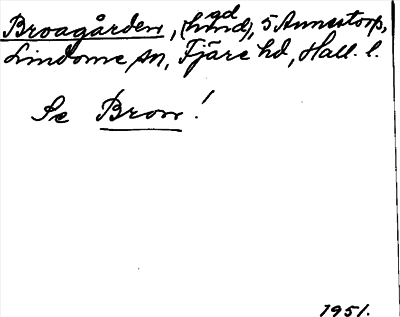 Broagården, (hmd gd), 5 Annestorp,
Lindome sn, Fjäre hd, Hall. l.
Se Bron!
1951.